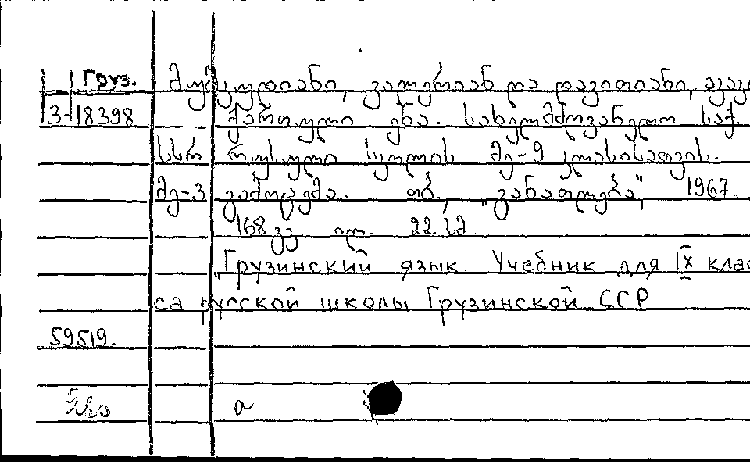 Груз. მუმლადიანი, ვალერიან და დავითიანი, აკაკი
3-18398 ქართული ენა. სახელმძღვანელო საქ.
სსრ რუსული სკოლის მე-9 კლასისათვის.
მე-3 გამოცემა. თბ., "განათლება", 1967.
168 გვ. ილ. 22.
Грузинский язык. Учебник для IX клас-
са русской школы Грузинской ССР
59519.
а